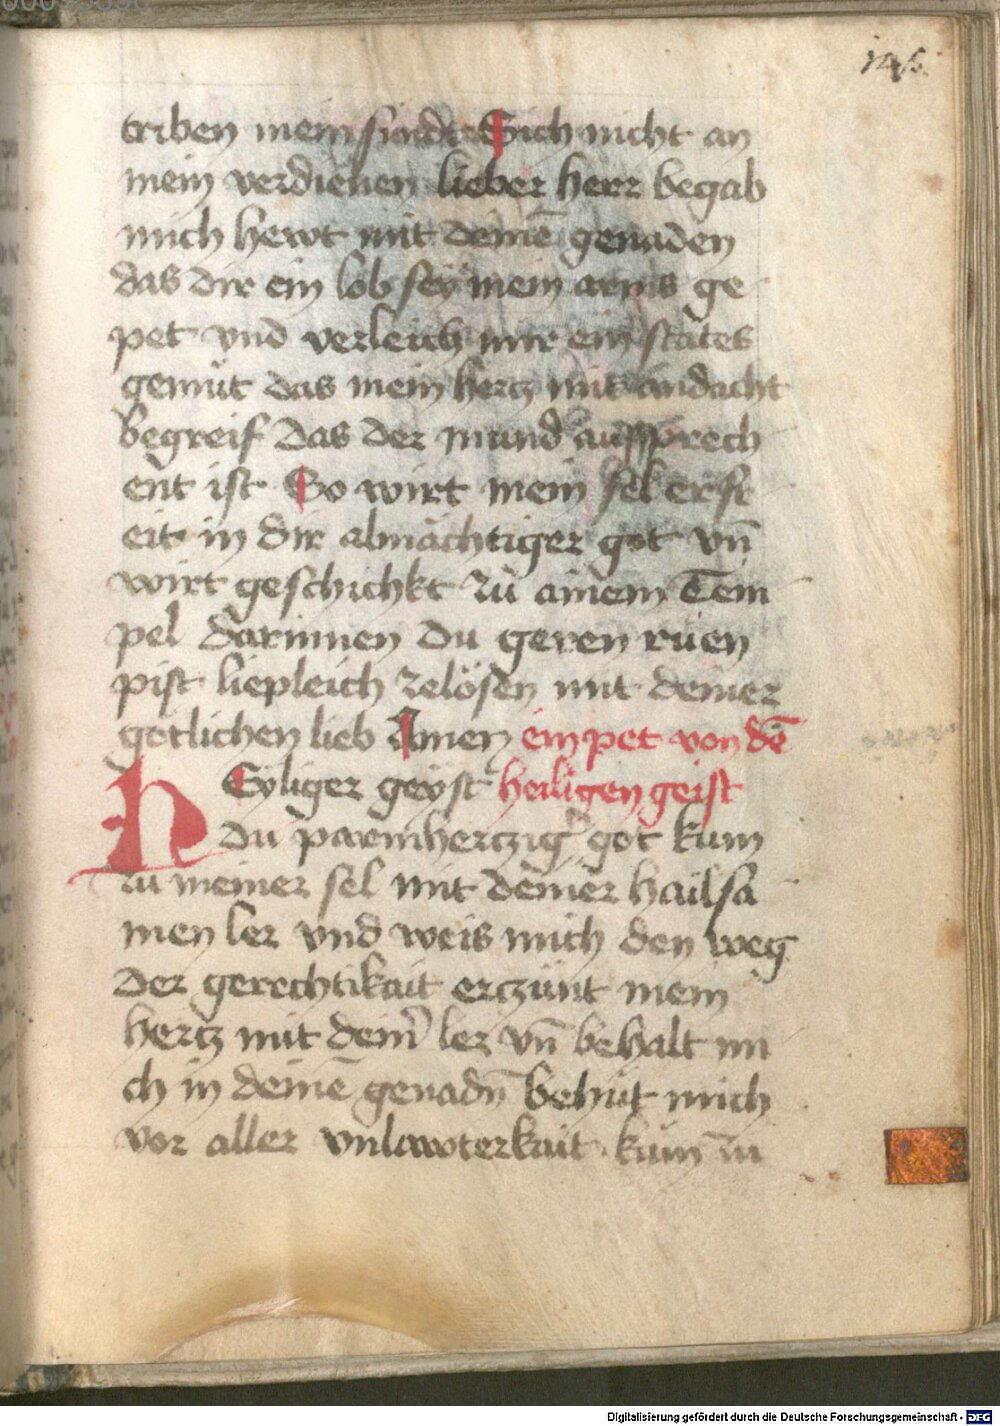 triben mein sundte Sich nicht an
mein verdienen lieber herr begab
mich hewt mit deinē genaden
das dir ein lob seÿ mein arms ge
pet vnd verleich mir ein stätes
gemüt das mein hertz mit andacht
begreif das der mund aussprech
ent ist So wirt mein sel erfr
eit in dir almächtiger got vn̄
wirt geschichkt zü ainem Tem
pel darinnen du geren rüen
pist liepleich zelösen mit deiner
götlichen lieb Amen ein pet von dē
heiligen geist
HEÿliger geÿst
du parmhertzig got kum
zu meiner sel mit deiner hailsa
men ler vnd weis mich den weg
der gerechtikait erczünt mein
hertz mit deinr ler vn̄ behalt mi
ch in deinē genadn̄ behüt mich
vor aller vnlawterkait kum zu
Digitalisierung gefördert durch die Deutsche Forschungsgemeinschaft - DFG